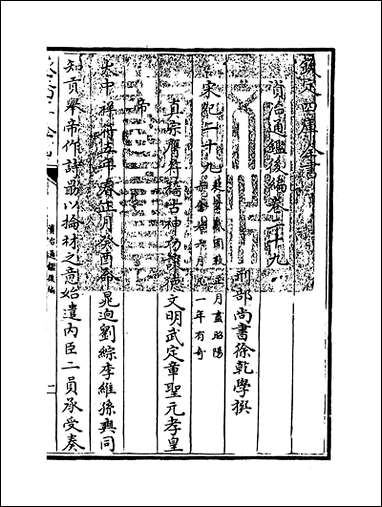 欽定四庫全書
資治通鑑後編卷二十九
刑部尚書徐乾學撰
宋紀二十九
起 困敦正月盡昭陽
六月 一年有奇
真宗膺符稽古神功讓德文明武定章聖元孝皇
帝
大中祥符五年春正月癸酉命晁迥劉綜李維孫奭同
知貢舉帝作詩勗以掄材之意始遣内臣二員承受奏
資治通鑑後編